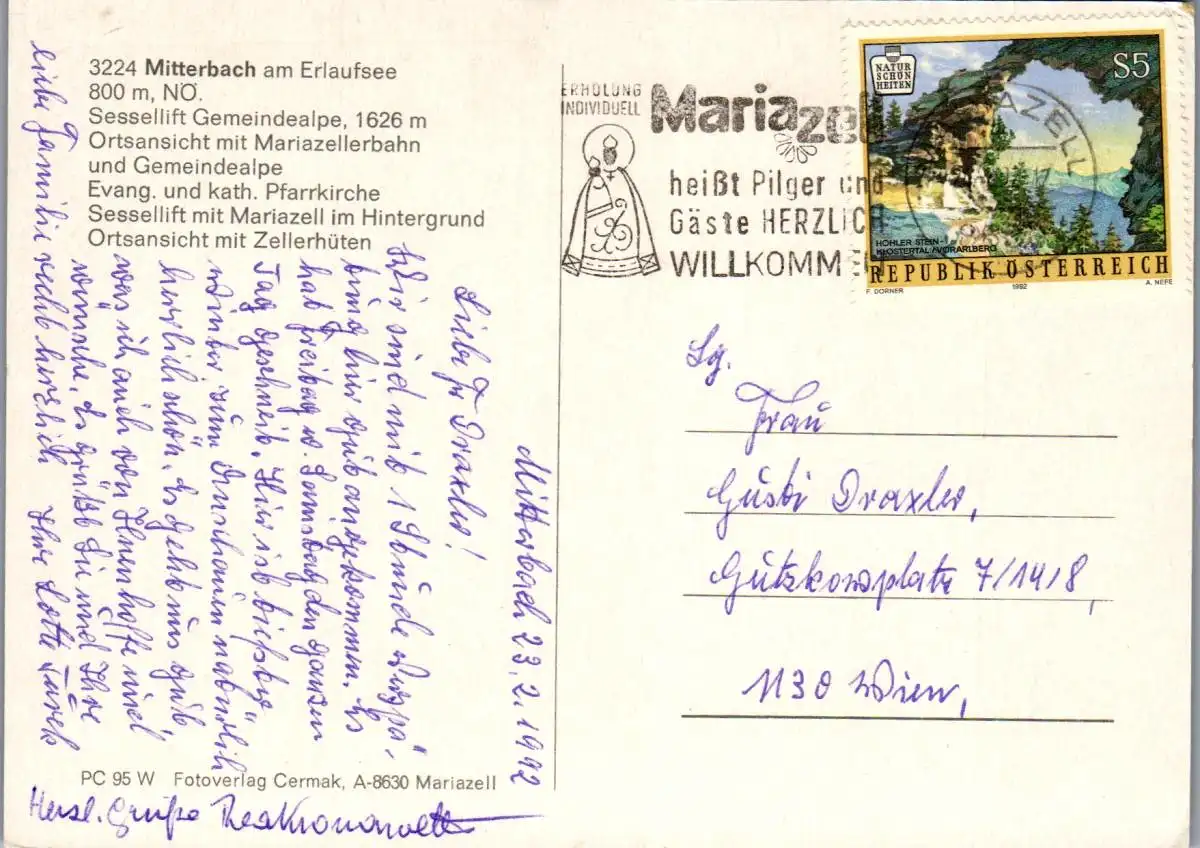 3224 Mitterbach am Erlaufsee
800 m, NÖ.
Sessellift Gemeindealpe, 1626 m
Ortsansicht mit Mariazellerbahn
und Gemeindealpe
Evang. und kath. Pfarrkirche
Sessellift mit Mariazell im Hintergrund
Ortsansicht mit Zellerhüten
Mitterbach 23.2.1992
Liebe Fr Draxler!
Wir sind mit 1 Stunde Verspä-
tung hier gut angekommen. Es
hat Freitag u. Samstag den ganzen
Tag geschneit. Hier ist tiefster
Winter zum Anschauen natürlich
herrlich schön. Es geht uns gut
was ich auch von Ihnen hoffe und
wünsche. Es grüßt Sie und Ihre
liebe Familie recht herzlich Ihre Lotte
Herzl. Grüße
PC 95 W Fotoverlag Cermak, A-8630 Mariazell
ERHOLUNG
INDIVIDUELL
Mariazell
heißt Pilger und
Gäste HERZLICH
WILLKOMMEN
NATUR
SCHÖN
HEITEN
S5
AZELL
HOHLER STEIN-
KLOSTERTAL/VORARLBERG
REPUBLIK ÖSTERREICH
F. DORNER 1992 A. NEFE
Sg.
Frau
Gusti Draxler,
Gutzkowplatz 7/14/8,
1130 Wien,